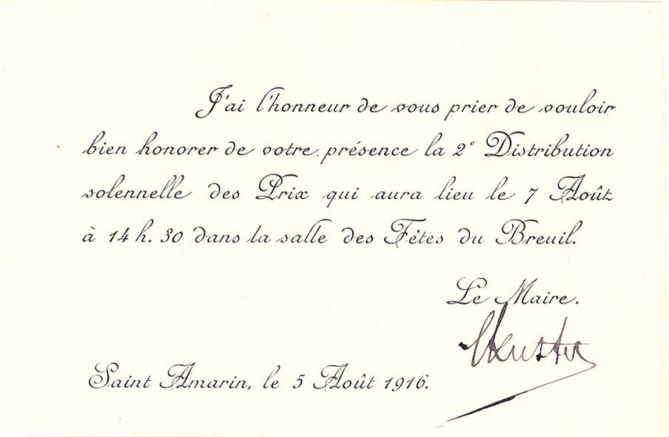 J'ai l'honneur de vous prier de vouloir
bien honorer de votre présence la 2e Distribution
solennelle des Prix qui aura lieu le 7 Août
à 14 h. 30 dans la salle des Fêtes du Breuil.
Le Maire.
Saint Amarin, le 5 Août 1916.